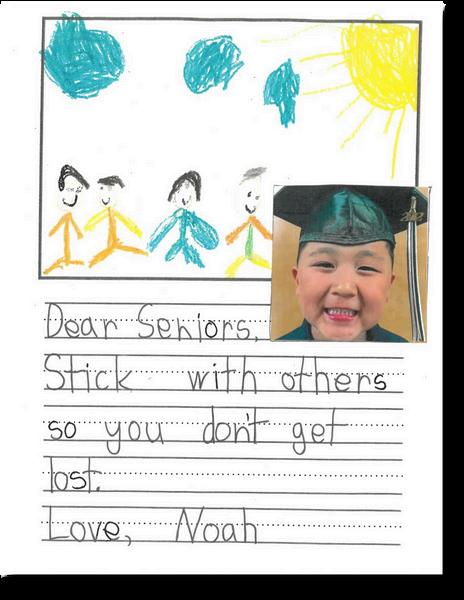 Dear Seniors,
Stick with others
so you don't get
lost.
Love, Noah